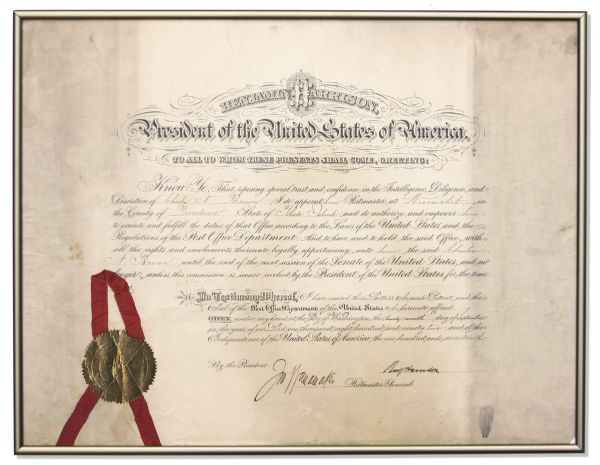 BENJAMIN HARRISON,
President of the United States of America.
TO ALL TO WHOM THESE PRESENTS SHALL COME, GREETING:
Know Ye, That, reposing special trust and confidence in the Intelligence, Diligence, and
Discretion of Charles N. I do appoint him Postmaster at in
the County of Providence State of Rhode Island, and do authorize and empower him
to execute and fulfill the duties of that Office according to the Laws of the United States and the
Regulations of the Post Office Department. And to have and to hold the said Office, with
all the rights and emoluments thereunto legally appertaining, unto him the said
N. until the end of the next session of the Senate of the United States, and no
longer, unless this commission is sooner revoked by the President of the United States for the time
In Testimony Whereof, I have caused these Letters to be made Patent, and the
Seal of the Post Office Department of the United States to be hereunto affixed.
GIVEN under my hand, at the City of Washington, the twenty-ninth day of September
in the year of our Lord one thousand eight hundred and ninety two and of the
Independence of the United States of America, the one hundred and seventeenth
By the President:
Benj Harrison
Jno Wanamaker
Postmaster General.